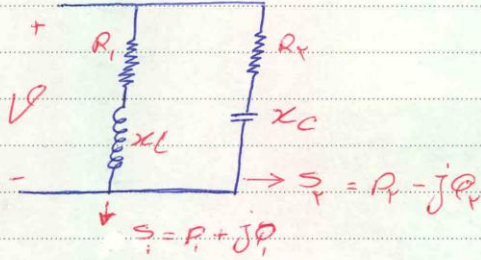 +
R₁ R₂
V
xL xC
-
S₂ = P₂ - jQ₂
S₁ = P₁ + jQ₁